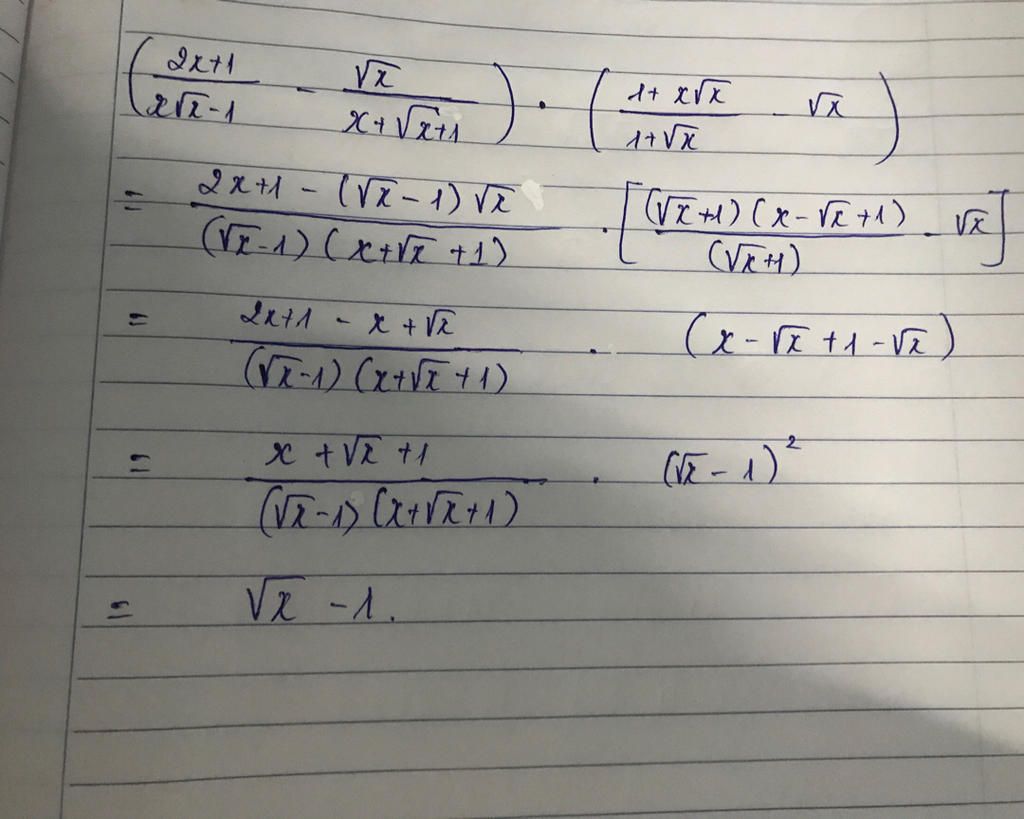 (\frac{2x+1}{x\sqrt{x}-1} - \frac{\sqrt{x}}{x+\sqrt{x}+1}) . (\frac{1+x\sqrt{x}}{1+\sqrt{x}} - \sqrt{x})
= \frac{2x+1-(\sqrt{x}-1)\sqrt{x}}{(\sqrt{x}-1)(x+\sqrt{x}+1)} . [\frac{(\sqrt{x}+1)(x-\sqrt{x}+1)}{(\sqrt{x}+1)} - \sqrt{x}]
= \frac{2x+1-x+\sqrt{x}}{(\sqrt{x}-1)(x+\sqrt{x}+1)} . (x-\sqrt{x}+1-\sqrt{x})
= \frac{x+\sqrt{x}+1}{(\sqrt{x}-1)(x+\sqrt{x}+1)} . (\sqrt{x}-1)^2
= \sqrt{x}-1.